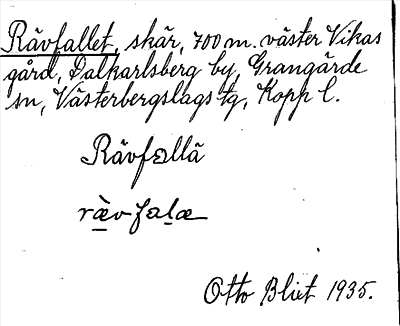 Rävfallet, skär, 700 m. väster Vikas
gård, Dalkarlsberg by, Grangärde
sn, Västerbergslags tg, Kopp l.
Rävfallä
Otto Blixt 1935.